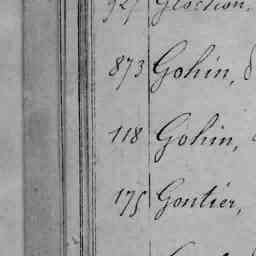 873 Gohin,
118 Gohin,
175 Gontier,